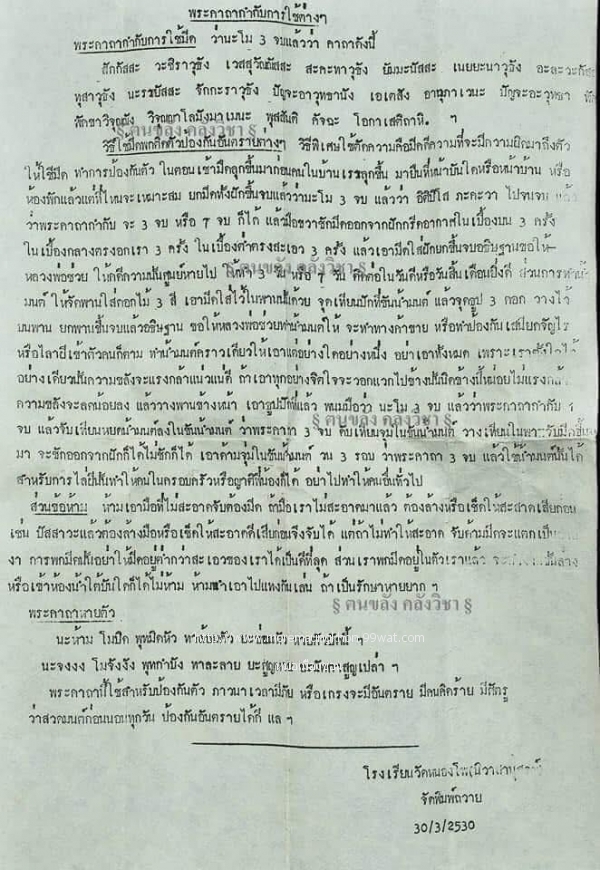 พระคาถากำกับการใช้ต่างๆ
พระคาถากำกับการใช้มีด ว่านะโม 3 จบแล้วว่า คาถาดังนี้
สักกัสสะ วะชิราวุธัง เวสสุวัณณัสสะ สะคะทาวุธัง ยัมมะนัสสะ เนยยะนาวุธัง อะละวะกัสสะ
ทุสาวุธัง นะรายัสสะ จักกะราวุธัง ปัญจะอาวุทธานัง เอเตสัง อานุภาเวนะ ปัญจะอะวุทธา
ภักขาวิจุณณัง วิจุณณาโลมังมาเมนะ พุสสันติ คัจฉะ โอกาเสติถาหิ. ฯ
§ ฅนขลัง คลังวิชา §
วิธีใช้มีดพกติดตัวป้องกันอันตรายต่างๆ วิธีพิเศษใช้ตัดความคือมีคดีความที่จะมีความผิดมาถึงตัว
ให้ใช้มีด ทำการป้องกันตัว ในตอนเช้ามืดลุกขึ้นมาก่อนคนในบ้านเราลุกขึ้น มายืนที่หน้าบันใดหรือหน้าบ้าน หรือ
ห้องพักแล้วแต่ที่ไหนจะเหมาะสม ยกมีดทั้งฝักขึ้นจบแล้วว่านะโม 3 จบ แล้วว่า อิติปิโส ภะคะวา ไปจนจบ แล้ว
ว่าพระคาถากำกับ จะ 3 จบ หรือ 7 จบ ก็ได้ แล้วมือขวาชักมีดออกจากฝักกรีดอากาศในเบื้องบน 3 ครั้ง
ในเบื้องกลางตรงอกเรา 3 ครั้ง ในเบื้องต่ำตรงสะเอว 3 ครั้ง แล้วเอามีดใส่ฝักยกขึ้นจบอธิษฐานขอให้
หลวงพ่อช่วย ให้คดีความนั้นศูนย์หายไป ให้ทำ 3 วัน หรือ 7 วัน ติดต่อในวันดีหรือวันสิ้นเดือนยิ่งดี ส่วนการทำน้ำ
มนต์ ให้จัดพานใส่ดอกไม้ 3 สี เอามีดใส่ไว้ในพานนั้นด้วย จุดเทียนปักที่ขันน้ำมนต์ แล้วจุดธูป 3 ดอก วางไว้
บนพาน ยกพานขึ้นจบแล้วอธิษฐาน ขอให้หลวงพ่อช่วยทำน้ำมนต์ให้ จะทำทางค้าขาย หรือทำป้องกันเสนียดจัญไร
หรือไล่ผีเข้าตัวคนก็ตาม ทำน้ำมนต์คราวเดียวให้เอาแต่อย่างใดอย่างหนึ่ง อย่าเอาทั้งหมด เพราะเราตั้งใจได้
อย่างเดียวนั้นความขลังจะแรงกล้าแน่วแน่ดี ถ้าเอาทุกอย่างจิตใจจะวอกแวกไปข้างนั้นนิดข้างนี้หน่อยไม่แรงกล้า
ความขลังจะลดน้อยลง แล้ววางพานข้างหน้า เอาธูปปักที่แล้ว พนมมือว่า นะโม 3 จบ แล้วว่าพระคาถากำกับ
§ ฅนขลัง คลังวิชา §
จบ แล้วจับเทียนหยดน้ำมนต์ลงในขันน้ำมนต์ ว่าพระคาถา 3 จบ ดับเทียนจุ่มในขันน้ำมนต์ วางเทียนในพานจับมีดขึ้น
มา จะชักออกจากฝักก็ได้ไม่ชักก็ได้ เอาด้ามจุ่มในขันน้ำมนต์ วน 3 รอบ ว่าพระคาถา 3 จบ แล้วใช้น้ำมนต์นั้นได้
สำหรับการไล่ผีนั้นทำให้คนในครอบครัวหรือญาติพี่น้องก็ได้ อย่าไปทำให้คนอื่นทั่วไป
ส่วนข้อห้าม ห้ามเอามือที่ไม่สะอาดจับต้องมีด ถ้ามือเราไม่สะอาดมาแล้ว ต้องล้างหรือเช็ดให้สะอาดเสียก่อน
เช่น ปัสสาวะแล้วต้องล้างมือหรือเช็ดให้สะอาดดีเสียก่อนจึงจับได้ แต่ถ้าไม่ทำให้สะอาด จับด้ามมีดจะแตกเป็น
งา การพกมีดนั้นอย่าให้มีดอยู่ต่ำกว่าสะเอวของเราได้เป็นดีที่สุด ส่วนเราพกมีดอยู่ในตัวเราแล้ว
หรือเข้าห้องน้ำใต้บันใดก็ได้ไม่ห้าม ห้ามนำเอาไปแทงกันเล่น ถ้าเป็นรักษาหายยาก ฯ
§ ฅนขลัง คลังวิชา §
พระคาถาหายตัว
นะห้าม โมปิด พุทมิดหัว
นะจงงง โมจังงัง พุทกำบัง ทาละลาย ยะสูญ
พระคาถานี้ใช้สำหรับป้องกันตัว ภาวนาเวลามีภัย หรือเกรงจะมีอันตราย มีคนคิดร้าย มีศัตรู
ว่าสวดมนต์ก่อนนอนทุกวัน ป้องกันอันตรายได้ดี แล ฯ
โรงเรียนวัดหนองโพ
จัดพิมพ์ถวาย
30/3/2530